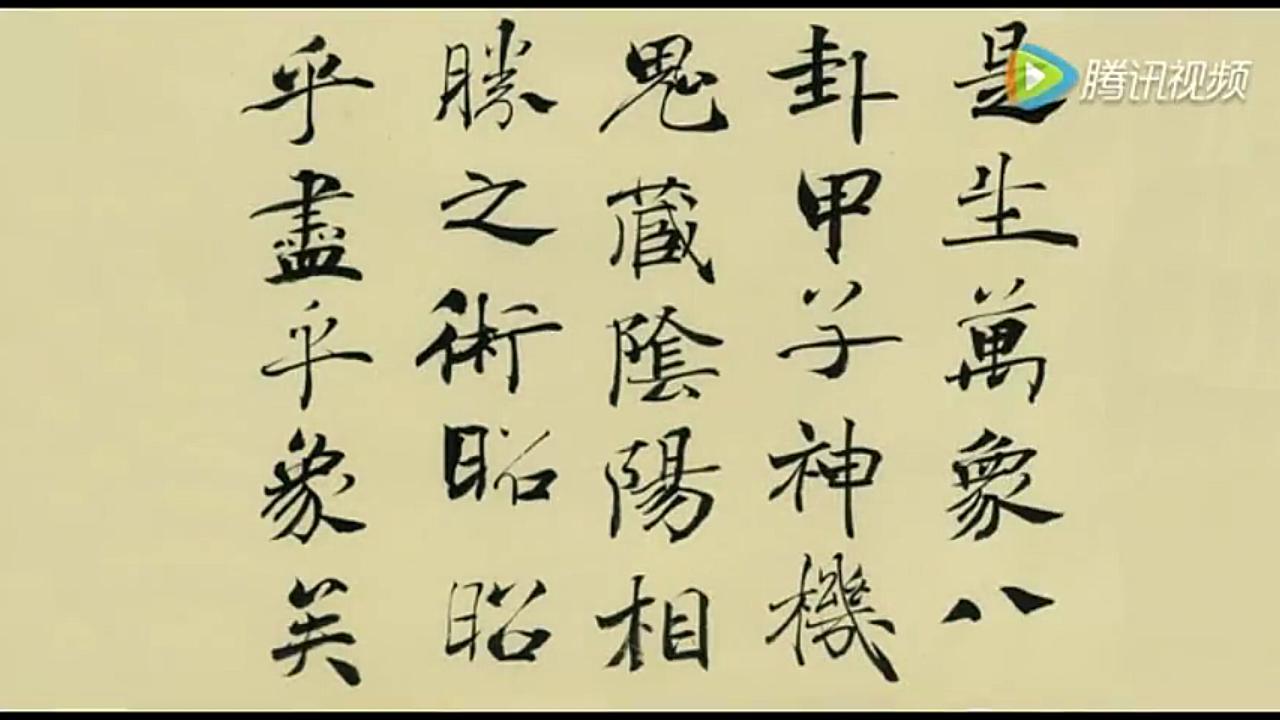 是生萬象八
卦甲子神機
鬼藏陰陽相
勝之術昭昭
乎盡乎象矣
腾讯视频